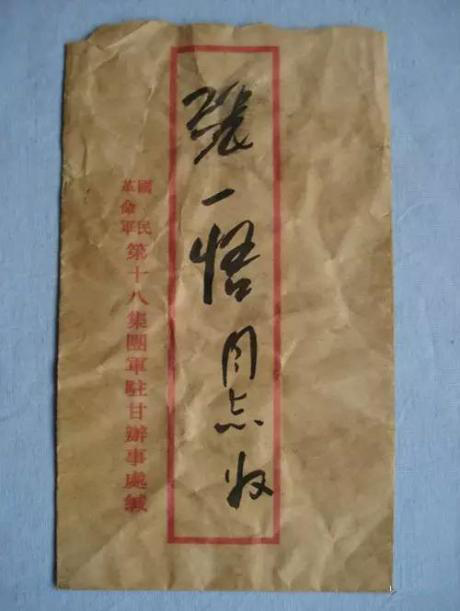 張一悟同志收
國民革命軍第十八集團軍駐甘辦事處緘